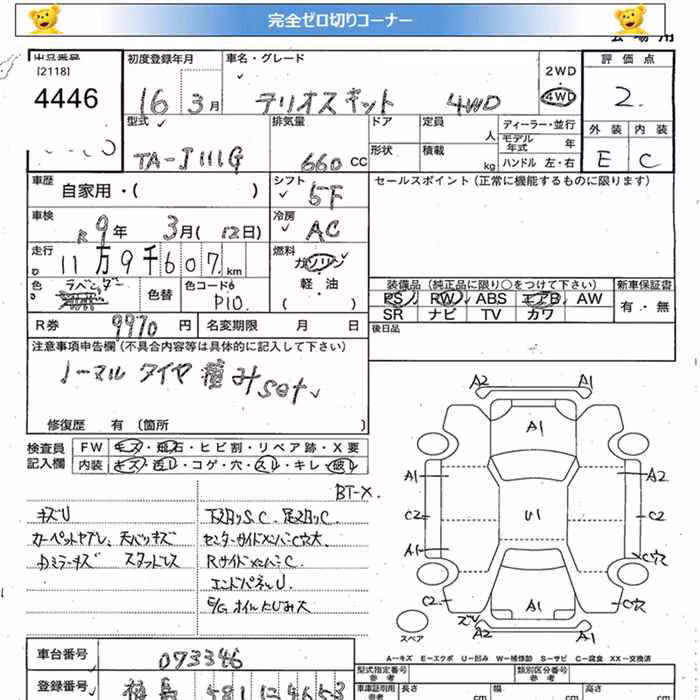 完全ゼロ切りコーナー
出品番号
[2118]
4446
初度登録年月
16年3月
車名・グレード
テリオスキット 4WD
2WD
4WD
評価点
2
型式
TA-J111G
排気量
660CC
ドア
定員
人
形状
積載
kg
ディーラー・並行
モデル年式 年
ハンドル 左・右
外装 内装
E C
車歴
自家用・( )
シフト
5F
セールスポイント(正常に機能するものに限ります)
車検
R9年 3月(12日)
冷房
AC
走行
11万9千607km
燃料
ガソリン
軽・油
( )
色
ラベンダー
色替
カラーコード
P10
装備品(純正品に限り○をつけて下さい)
新車保証書
PS RW ABS エアB AW
有・無
SR ナビ TV カワ
R券 9970円
名変期限 月 日
後日品
注意事項申告欄(不具合内容等は具体的に記入して下さい)
ノーマルタイヤ積みset
修復歴 有(箇所 )
検査員記入欄
FW キズ・飛石・ヒビ割・リペア跡・X要
内装 キズ・汚レ・コゲ・穴・スレ・キレ・破レ
BT-X
キズU
カーペットヤブレ、天バリキズ
Dミラーキズ スタッドレス
下廻りS.C. 足廻りC.
センターサイドメンバーC穴大
RサイドメンバーC
エンドパネルU.
E/Gオイルにじみ大
A2 A1
A1
A1 A2
C2 U1 C2
A1 C穴
C2 ズレ A1 C穴
A2 A1
スペア
A-キズ E-エクボ U-凹み W-補修跡 S-サビ C-腐食 XX-交換済
車台番号 073346
登録番号 581 に 4653
型式指定番号 参考
類別区分番号 参考
車庫証明用 参考
長さ cm
幅 cm
高さ cm